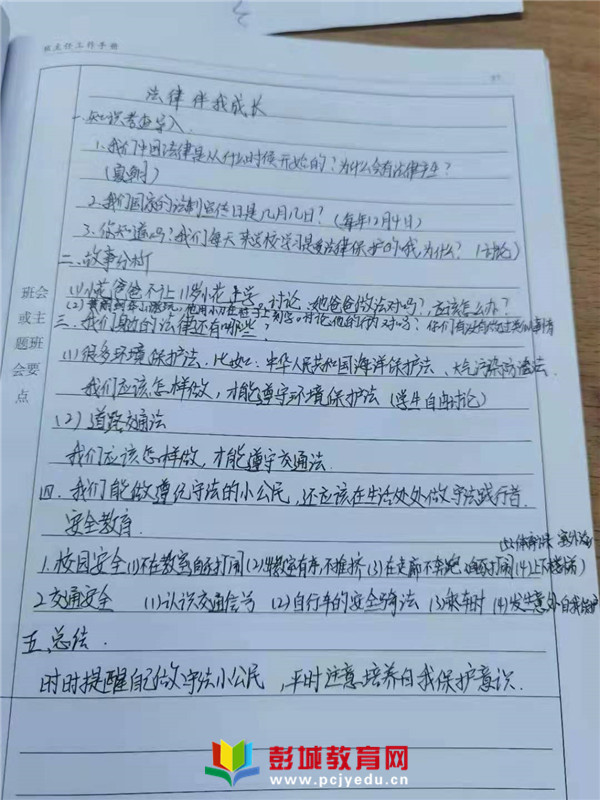 班主任工作手册
法律伴我成长
一.知识考查导入
1.我们中国法律是从什么时候开始的?为什么会有法律产生?
(夏朝)
2.我们国家的法制宣传日是几月几日?(每年12月4日)
3.你知道吗?我们每天来学校学习是受法律保护的哦,为什么?(讨论)
二.故事分析
(1)小花爸爸不让11岁小花上学。讨论:她爸爸做法对吗?应该怎么办?
(2)他用小刀在桌子上刻字。讨论他的行为对吗?你们有没有做过类似事情
三.我们身边的法律还有哪些?
(1)很多环境保护法.比如:中华人民共和国海洋保护法、大气污染防治法.
我们应该怎样做,才能遵守环境保护法(学生自由讨论)
(2)道路交通法
我们应该怎样做,才能遵守交通法.
四.我们能做遵纪守法的小公民,还应该在生活处处做守法践行者.
安全教育.
(5)体育课 室外活动
1.校园安全(1)不在教室追逐打闹(2)出教室有序,不推挤(3)在走廊不奔跑 追逐打闹(4)上下楼梯
2.交通安全 (1)认识交通信号 (2)自行车的安全骑法 (3)乘车时 (4)发生意外自我保护
五.总结.
时时提醒自己做守法小公民,平时注意培养自我保护意识.
班会
或主
题班
会要
点
彭城教育网
www.pcjyedu.cn